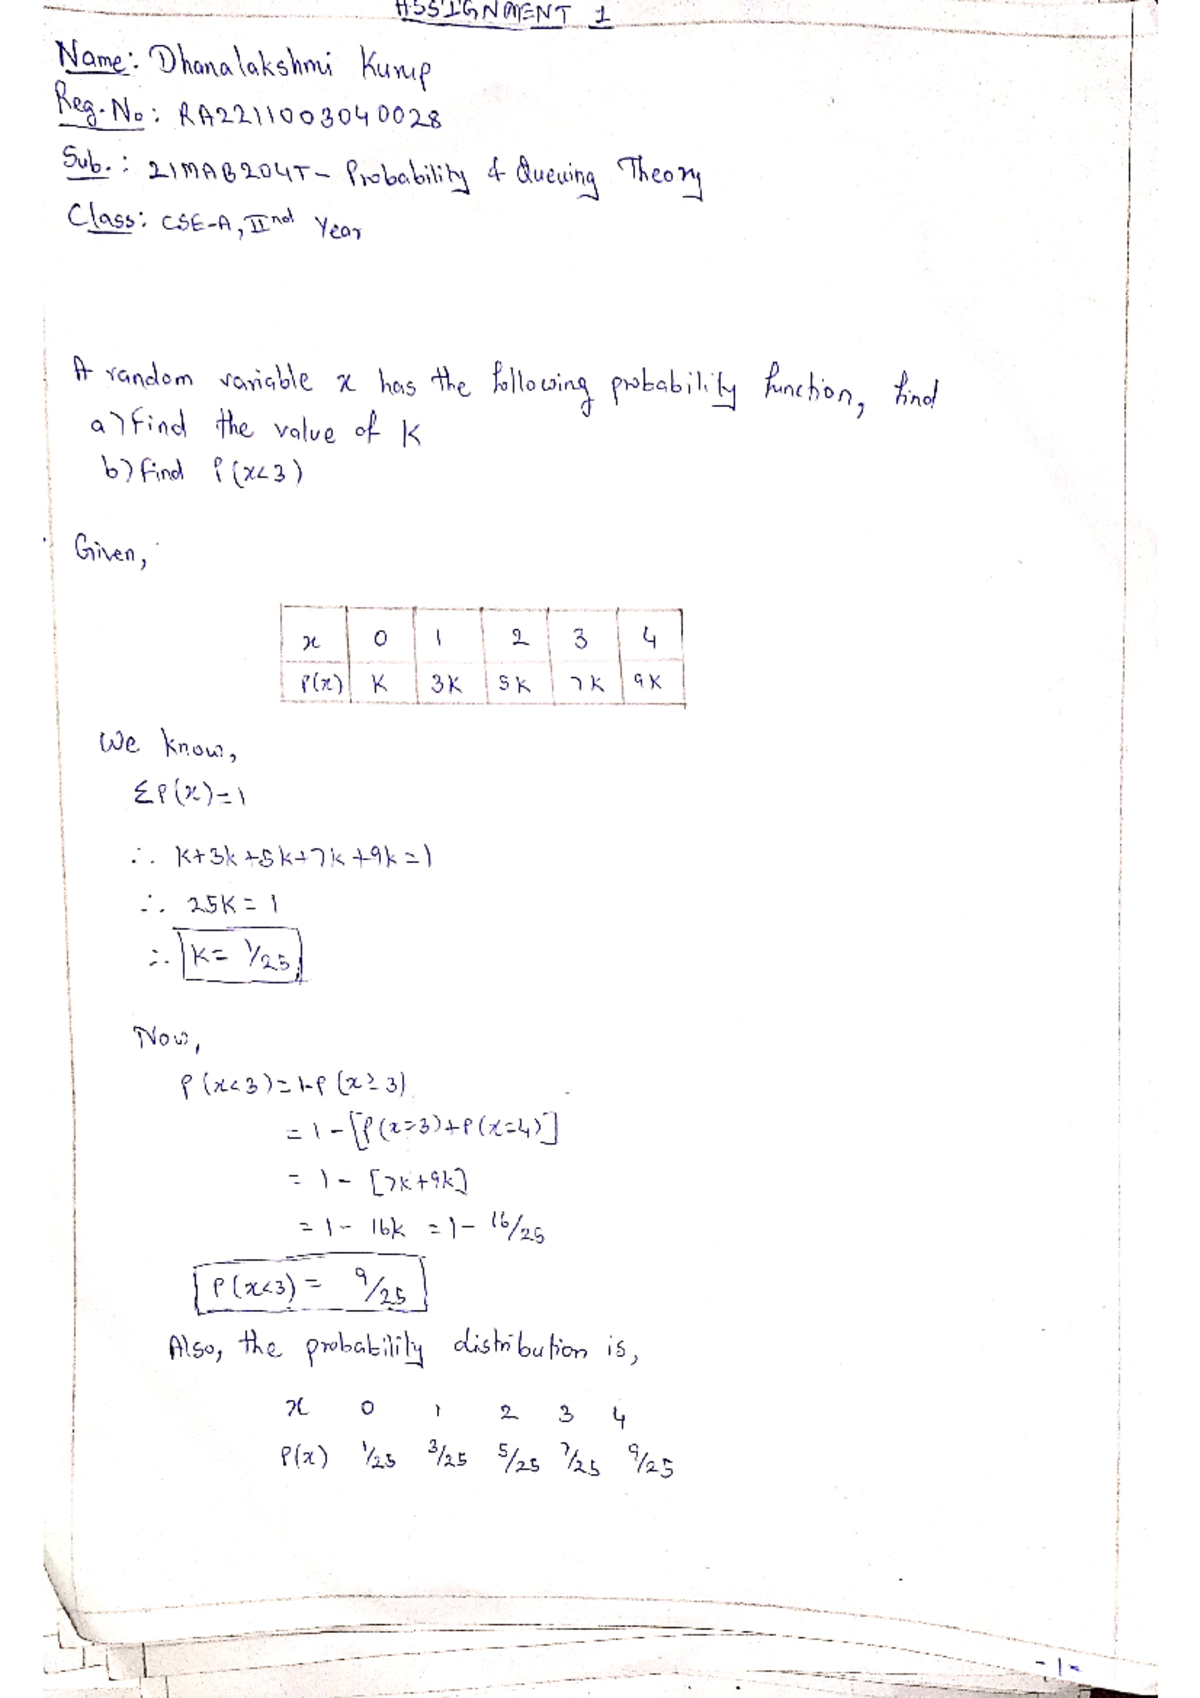 ASSIGNMENT 1
Name: Dhanalakshmi Kurup
Reg. No: RA2211003040028
Sub. : 21MAB204T - Probability & Queuing Theory
Class: CSE-A, IInd Year
A random variable x has the following probability function, find
a) Find the value of K
b) Find P(x<3)
Given,
x 0 1 2 3 4
P(x) K 3K 5K 7K 9K
We know,
ΣP(x)=1
∴ K+3k+5k+7k+9k=1
∴ 25K = 1
∴ K= 1/25
Now,
P(x<3)=1-P(x≥3)
= 1-[P(x=3)+P(x=4)]
= 1- [7k+9k]
= 1- 16k = 1- 16/25
P(x<3) = 9/25
Also, the probability distribution is,
x 0 1 2 3 4
P(x) 1/25 3/25 5/25 7/25 9/25
-1-